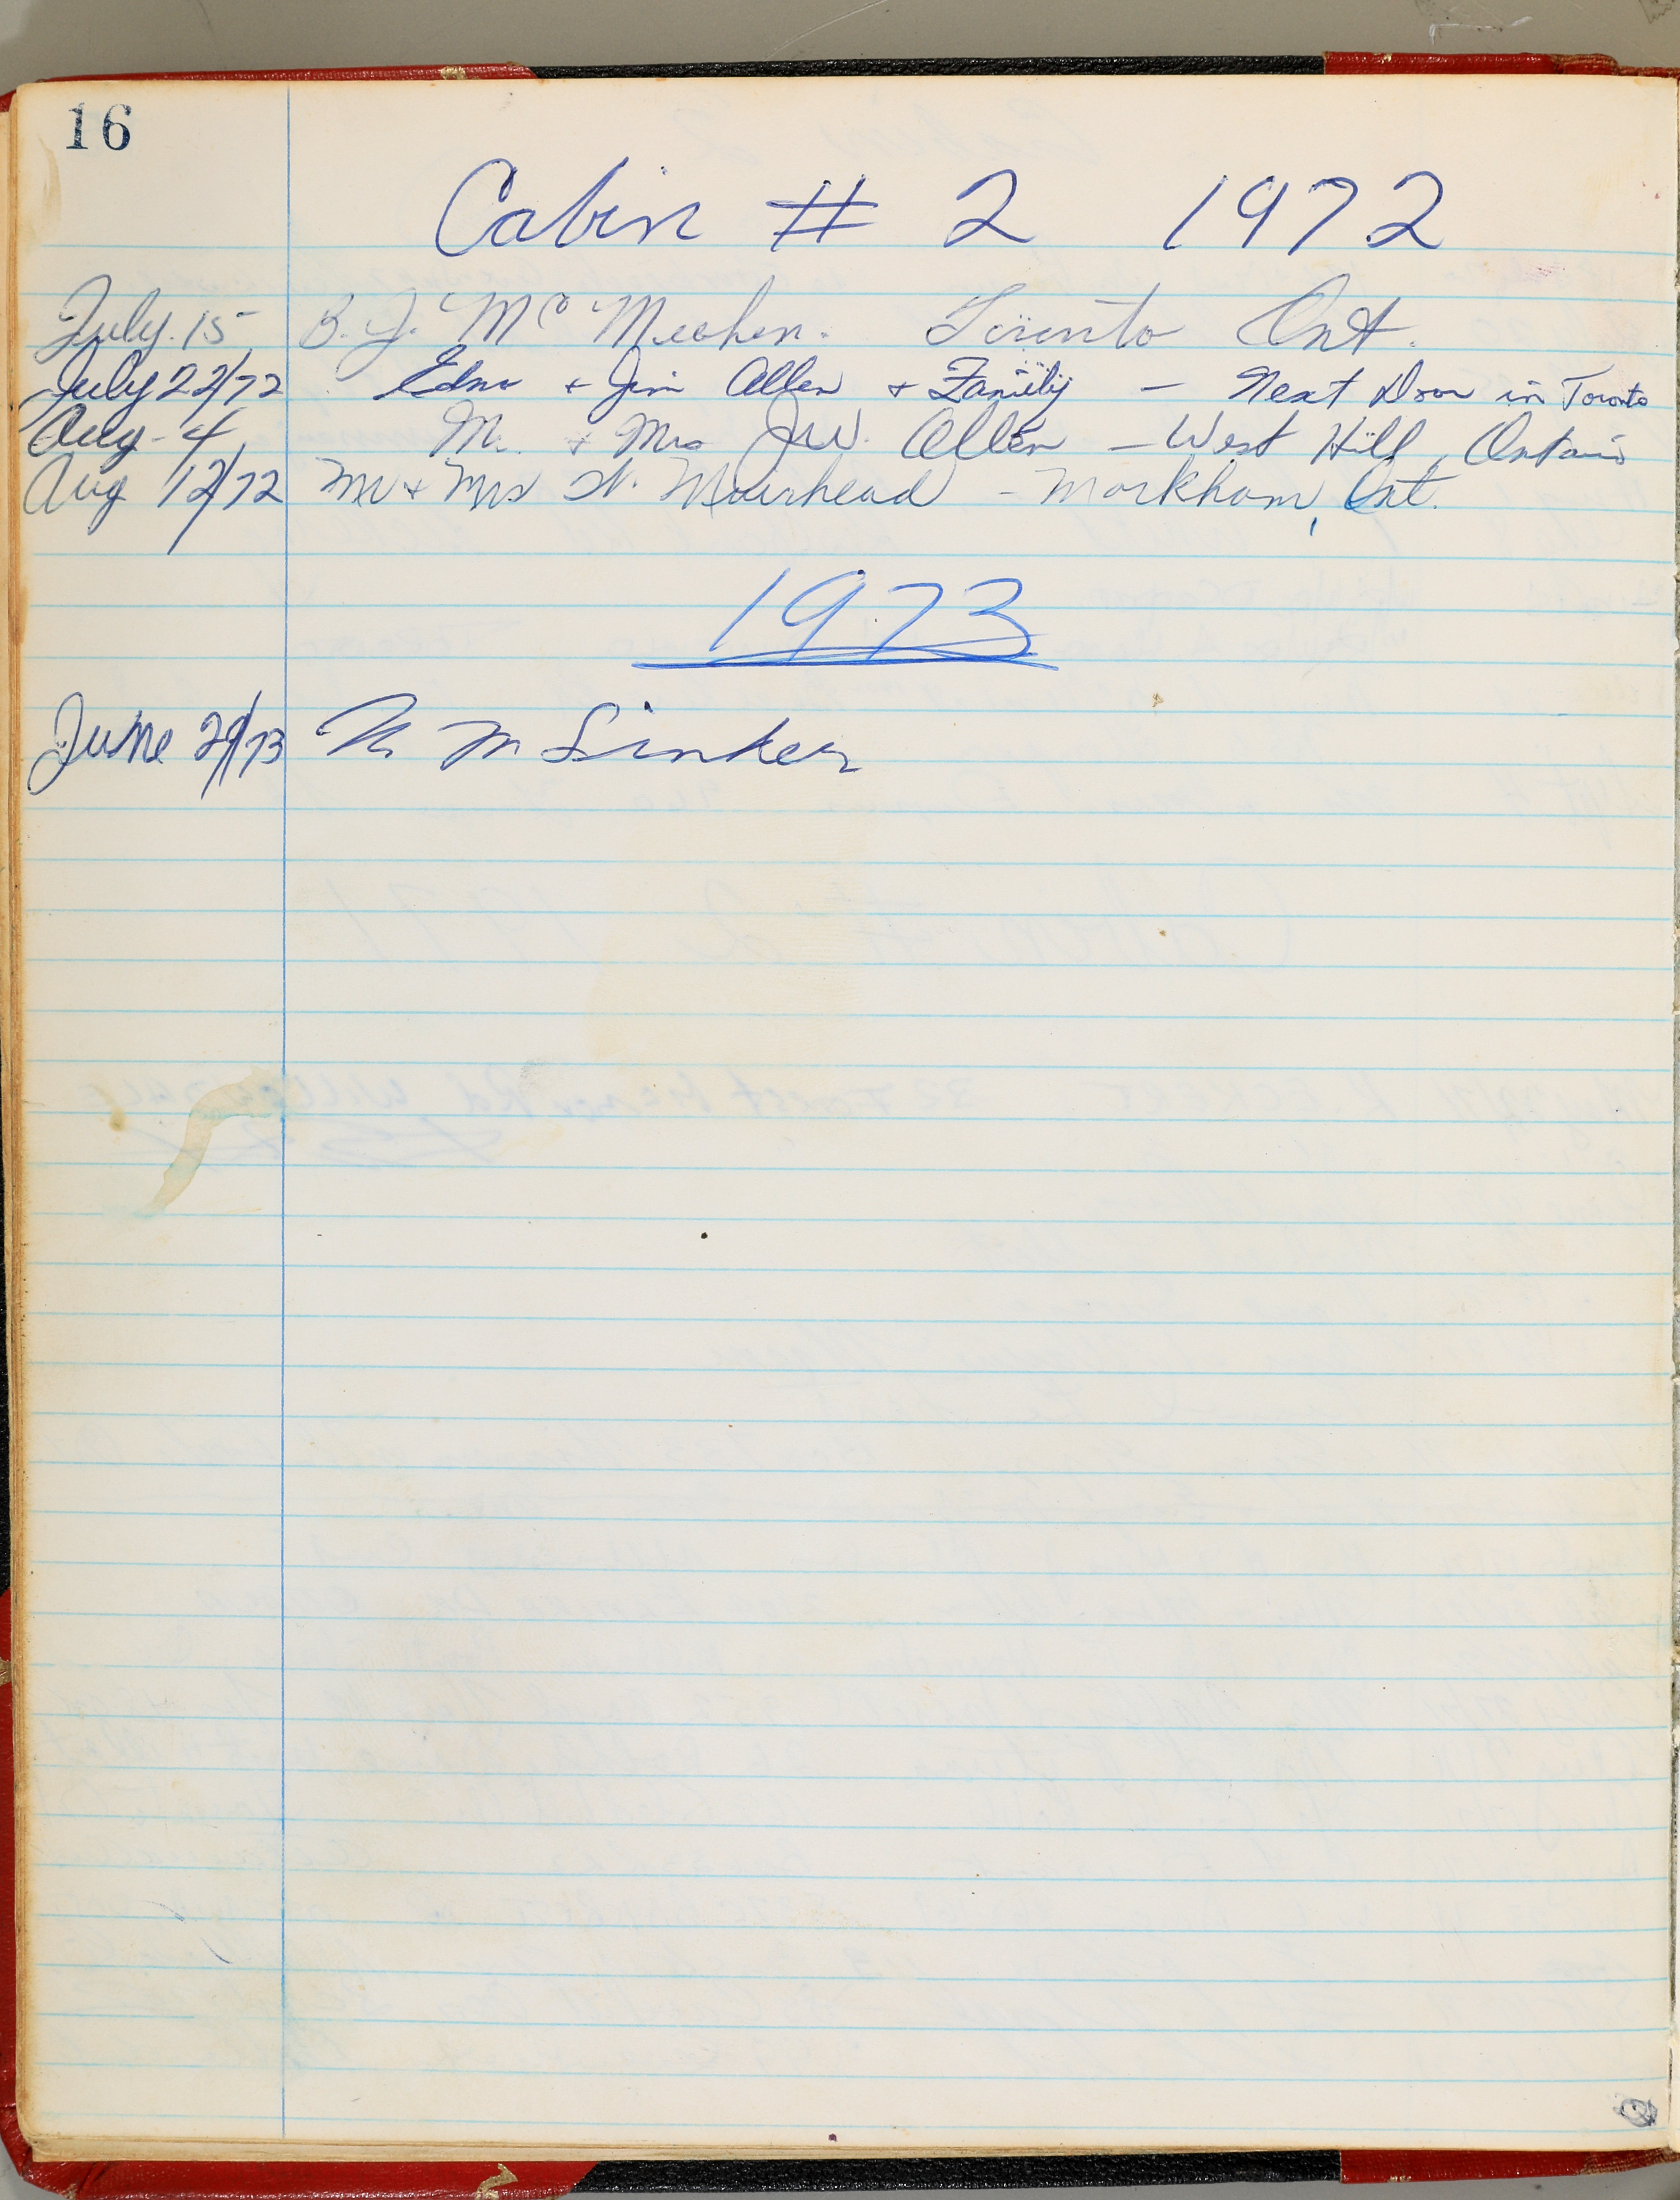 16
Cabin # 2 1972
July. 15 B. J. McMeehen. Toronto Ont.
July 22/72 Edna + Jim Allen + Family — Next Door in Toronto
Aug - 4 Mr. + Mrs J.W. Allen — West Hill, Ontario
Aug 12/72 Mr + Mrs N. Muirhead - Markham, Ont.
1973
June 29/73 M Sinker